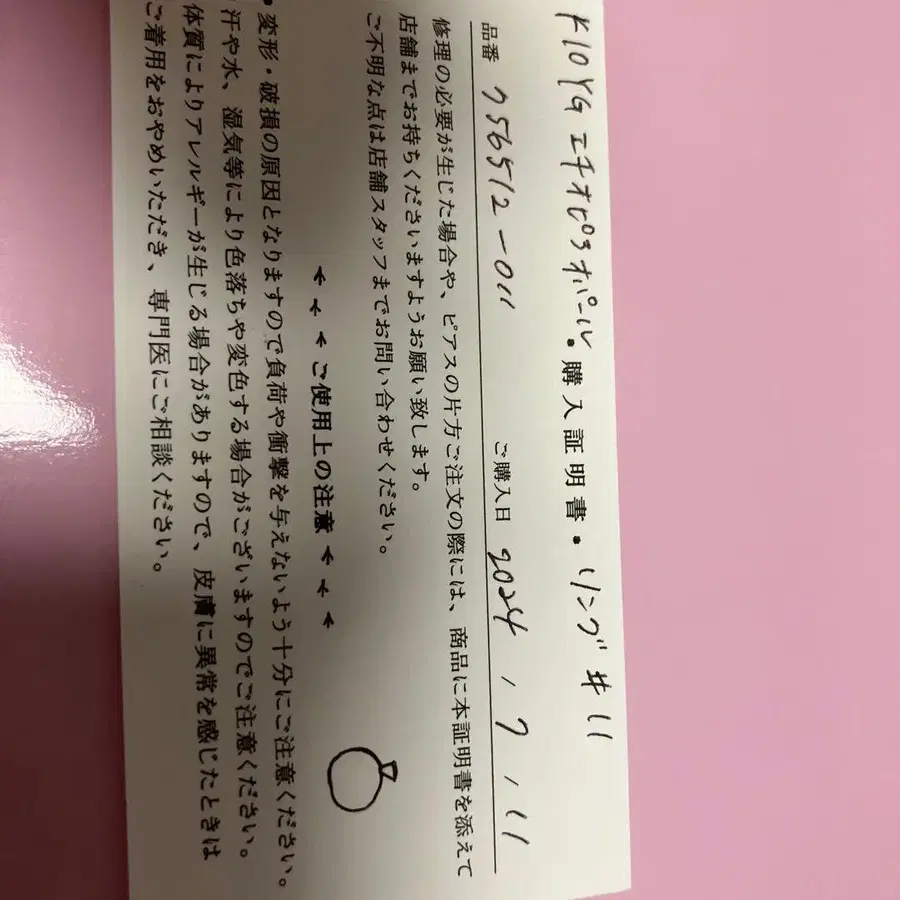 K10YG エチオピアオパール・購入証明書・リング #11
品番 756512-011 ご購入日 2024.7.11
修理の必要が生じた場合や、ピアスの片方ご注文の際には、商品に本証明書を添えて
店舗までお持ちくださいますようお願い致します。
ご不明な点は店舗スタッフまでお問い合わせください。
ご使用上の注意
・変形・破損の原因となりますので負荷や衝撃を与えないよう十分にご注意ください。
・汗や水、湿気等により色落ちや変色する場合がございますのでご注意ください。
体質によりアレルギーが生じる場合がありますので、皮膚に異常を感じたときは
ご着用をおやめいただき、専門医にご相談ください。